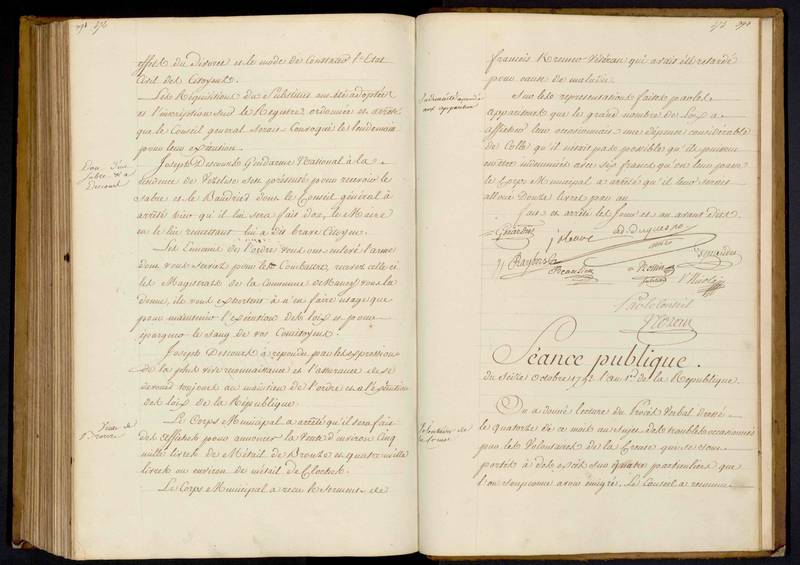 effet du Divorce et le mode de Constater l'Etat
Civil des Citoyens.
Les Réquisitions du Substitut ont été adoptées
et l'inscription sur le Registre ordonnée et arrêté
que le Conseil general serait Convoqué le lendemain
pour leur exécution.
Don d'un
Sabre à
Descourt
Joseph Descourt Gendarme National à la
résidence de Vezelise s'est présenté pour recevoir le
Sabre et le Baudrier dont le Conseil général a
arrêté hier qu'il lui sera fait don, le Maire
en le lui remettant lui a dit brave Citoyen.
Les Ennemis de l'ordre vous ont enlevé l'arme
dont vous serviez pour les Combattre, recevez celle ci
les Magistrats de la Commune de Nancy vous la
donne, ils vous exhortent à n'en faire usage que
pour maintenir l'exécution des loix et pour
épargner le sang de vos Concitoyens.
Joseph Descourt à répondu par les expressions
de la plus vive reconnaissance et l'assurance de se
devoué toujours au maintien de l'ordre et à l'Exécution
des loix de la République.
Vente de
Bronze
Le Corps Municipal a arrêté qu'il sera fait
des affiches pour annoncer la Vente d'environ Cinq
mille livres de Métail de Bronze et quatre mille
livres ou environ de métail de Cloches.
Le Corps Municipal a reçu le serment de
francois Vétéran qui avait été retardé
pour cause de maladie.
Indemnité
aux appariteurs
Sur les représentations faites par les
appariteurs que le grand nombre de Loix à
afficher leur occasionnait une dépense considérable
de Colle qu'il n'était pas possible qu'ils puissent
en être indemnisés avec six francs qu'on leur passe
le Corps Municipal a arrêté qu'il leur serait
alloué Douze livres par an
fait et arrêté les jour et an avant dits.
Girardin
ad. duquesno
Rayboiss
Beaulieu
Rollin
Par le Conseil
Séance publique.
du Seize Octobre 1792 l'an 1.er de la République.
Volontaires de
la Creuse
On a donné lecture du Procès Verbal dressé
le quatorze de ce mois au sujet des troubles occasionnés
par les Volontaires de la Creuse qui se sont
portés à des excès sur quatre particuliers que
l'on soupçonne avoir émigré. Le Conseil a renvoie